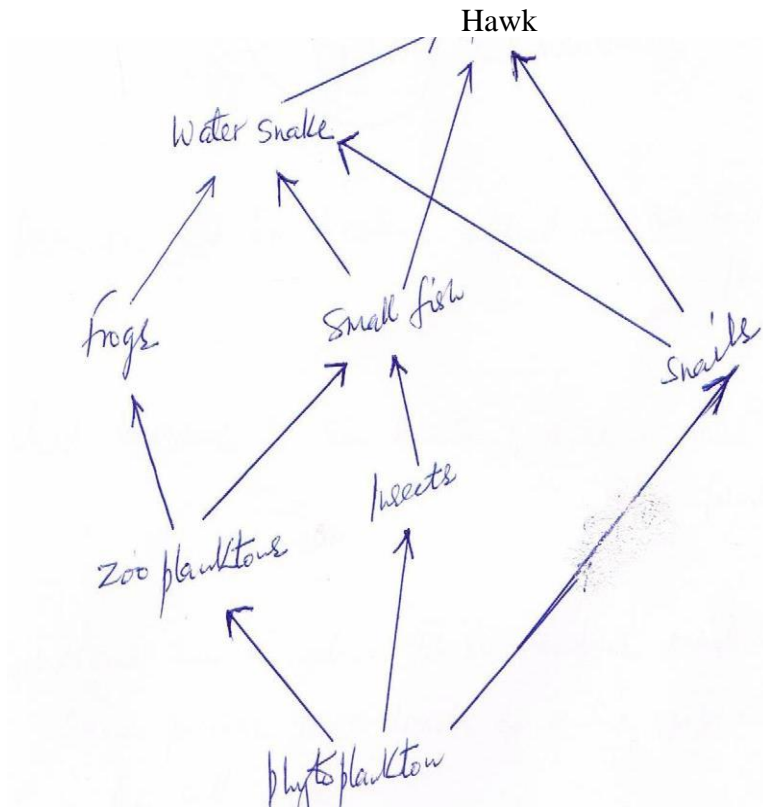 Hawk
Water snake
Frogs
Small fish
Snails
Insects
Zooplanktons
phytoplankton